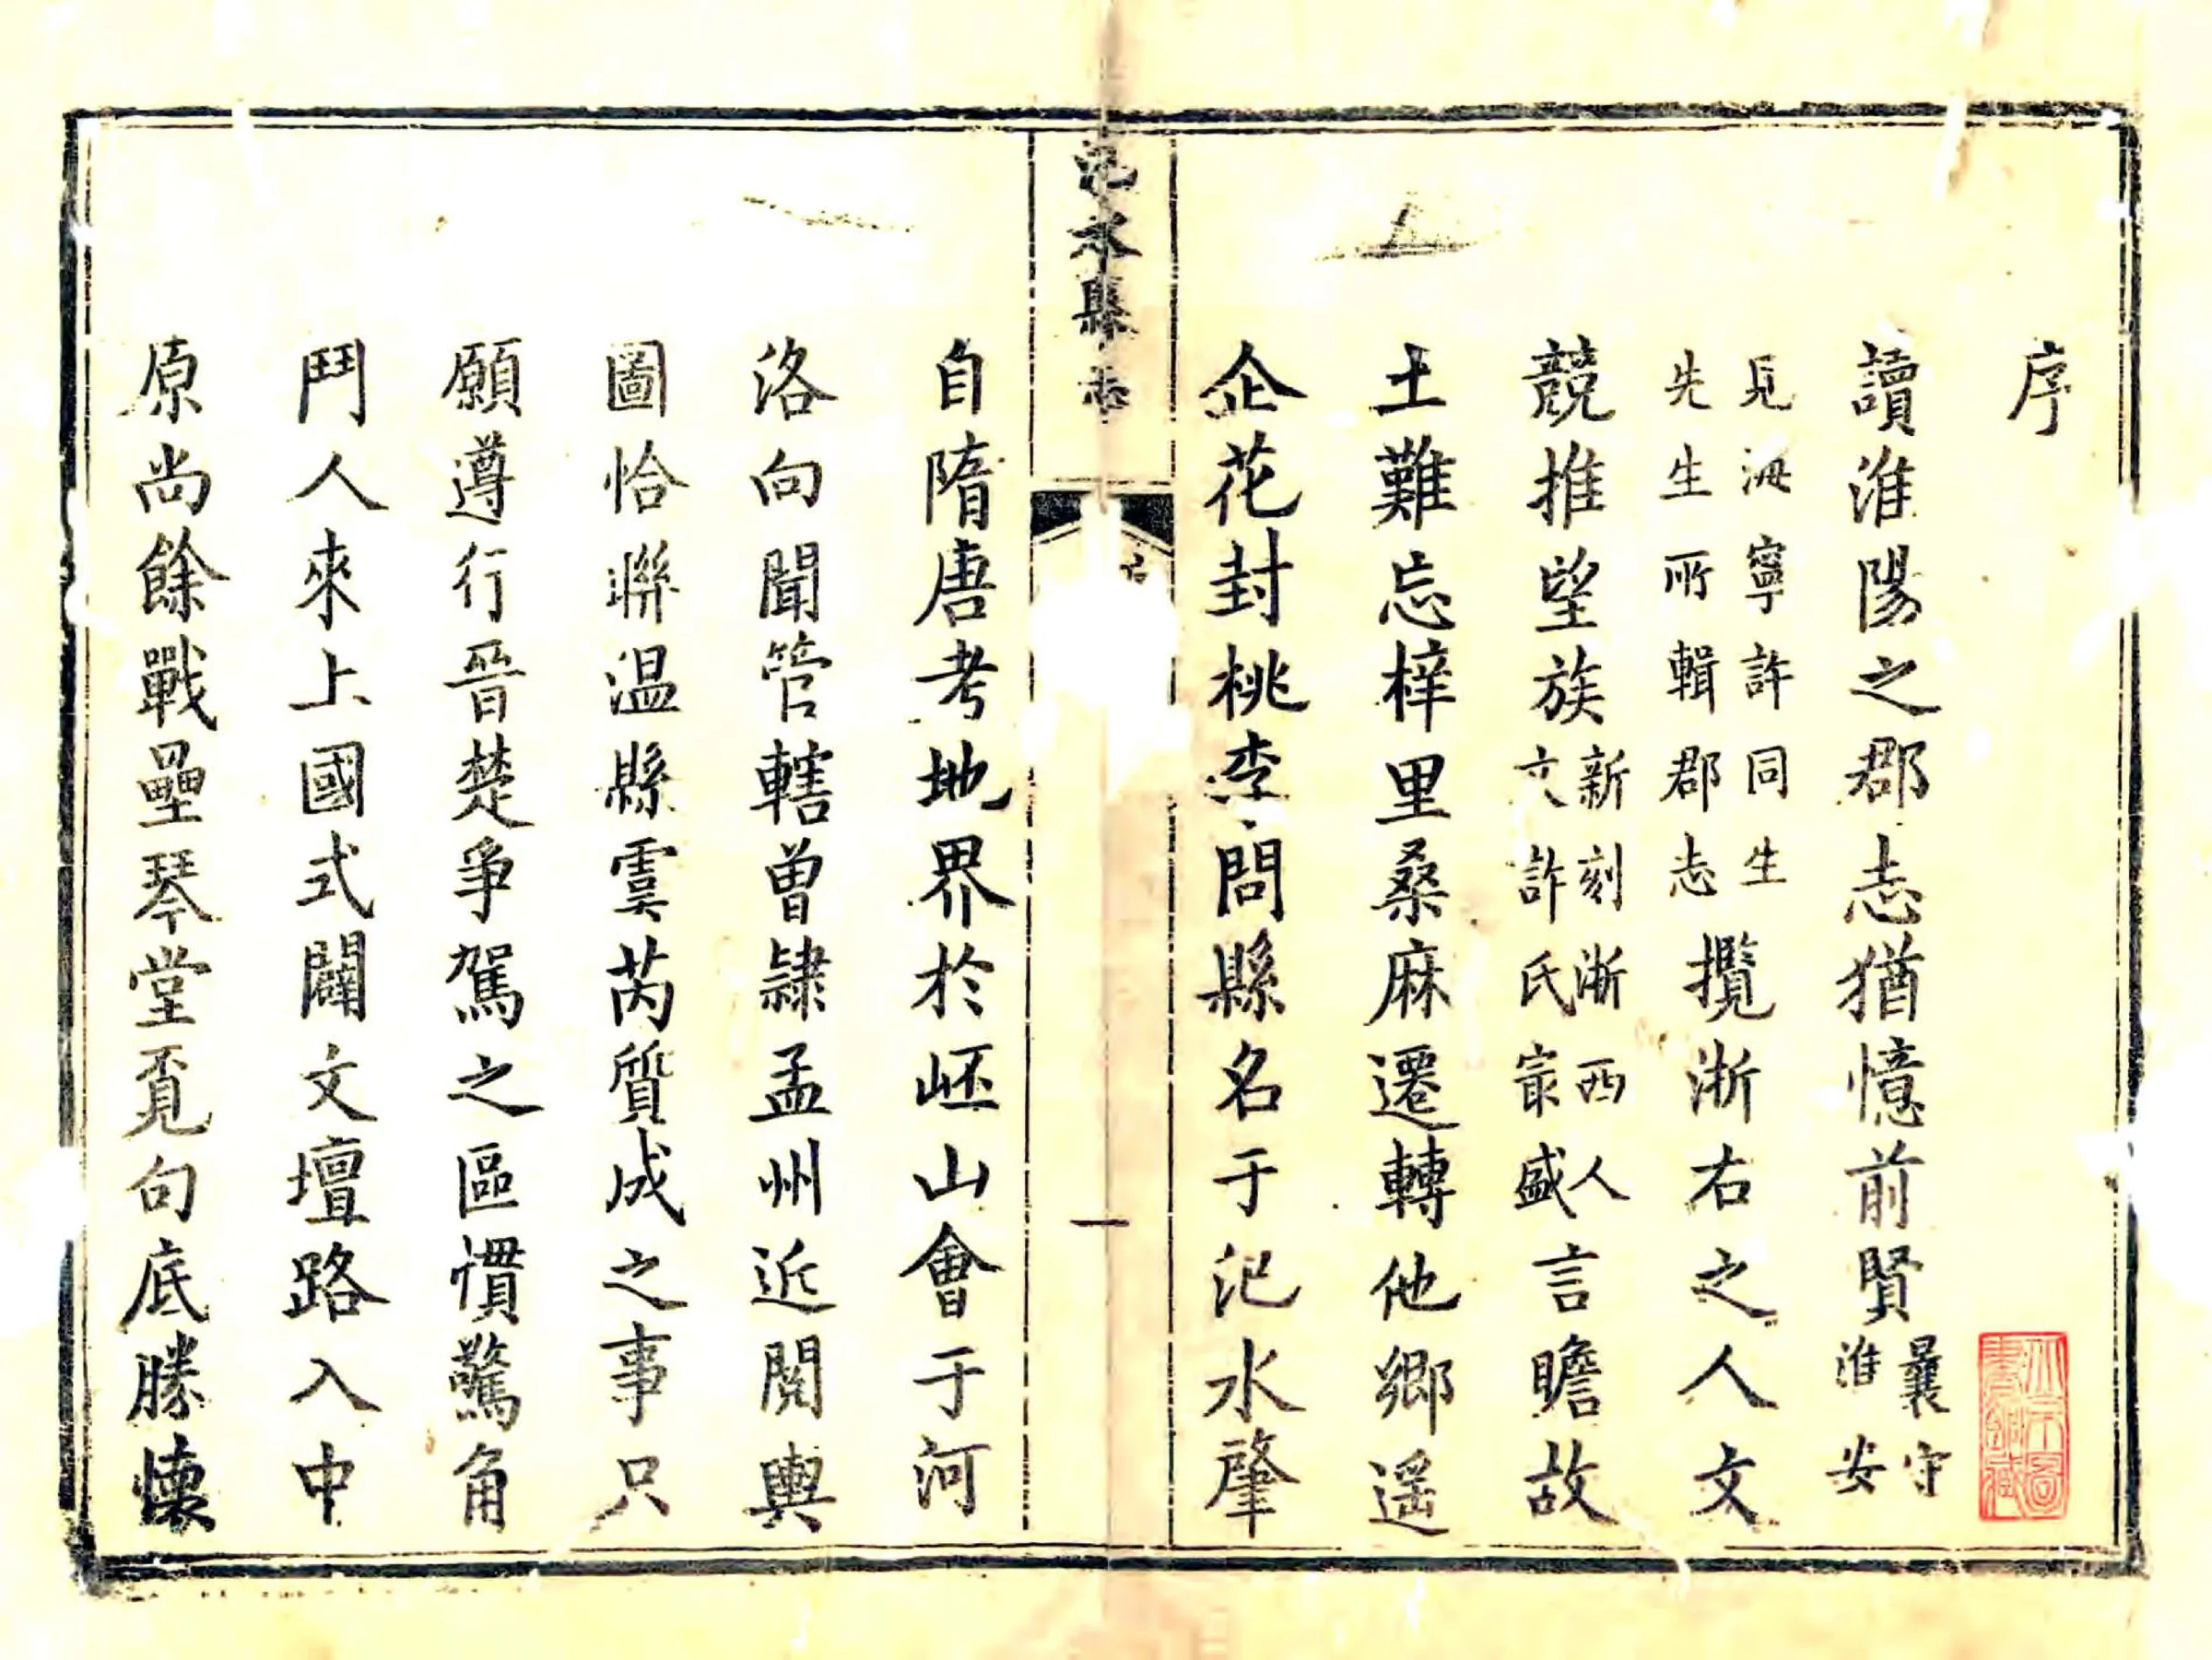 序
讀淮陽之郡志猶憶前賢曩守淮安
見海寧許同生先生所輯郡志攬浙右之人文
競推望族新刻浙西人文許氏最盛言瞻故
土難忘梓里桑麻遷轉他鄉遥
企花封桃李問縣名于汜水肇
汜水縣志
序
一
自隋唐考地界於岯山會于河
洛向聞管轄曾隷孟州近閱輿
圖恰聯温縣虞芮質成之事只
願遵行晉楚爭駕之區慣驚角
鬥人來上國式闢文壇路入中
原尚餘戰壘琴堂覓句底勝懷